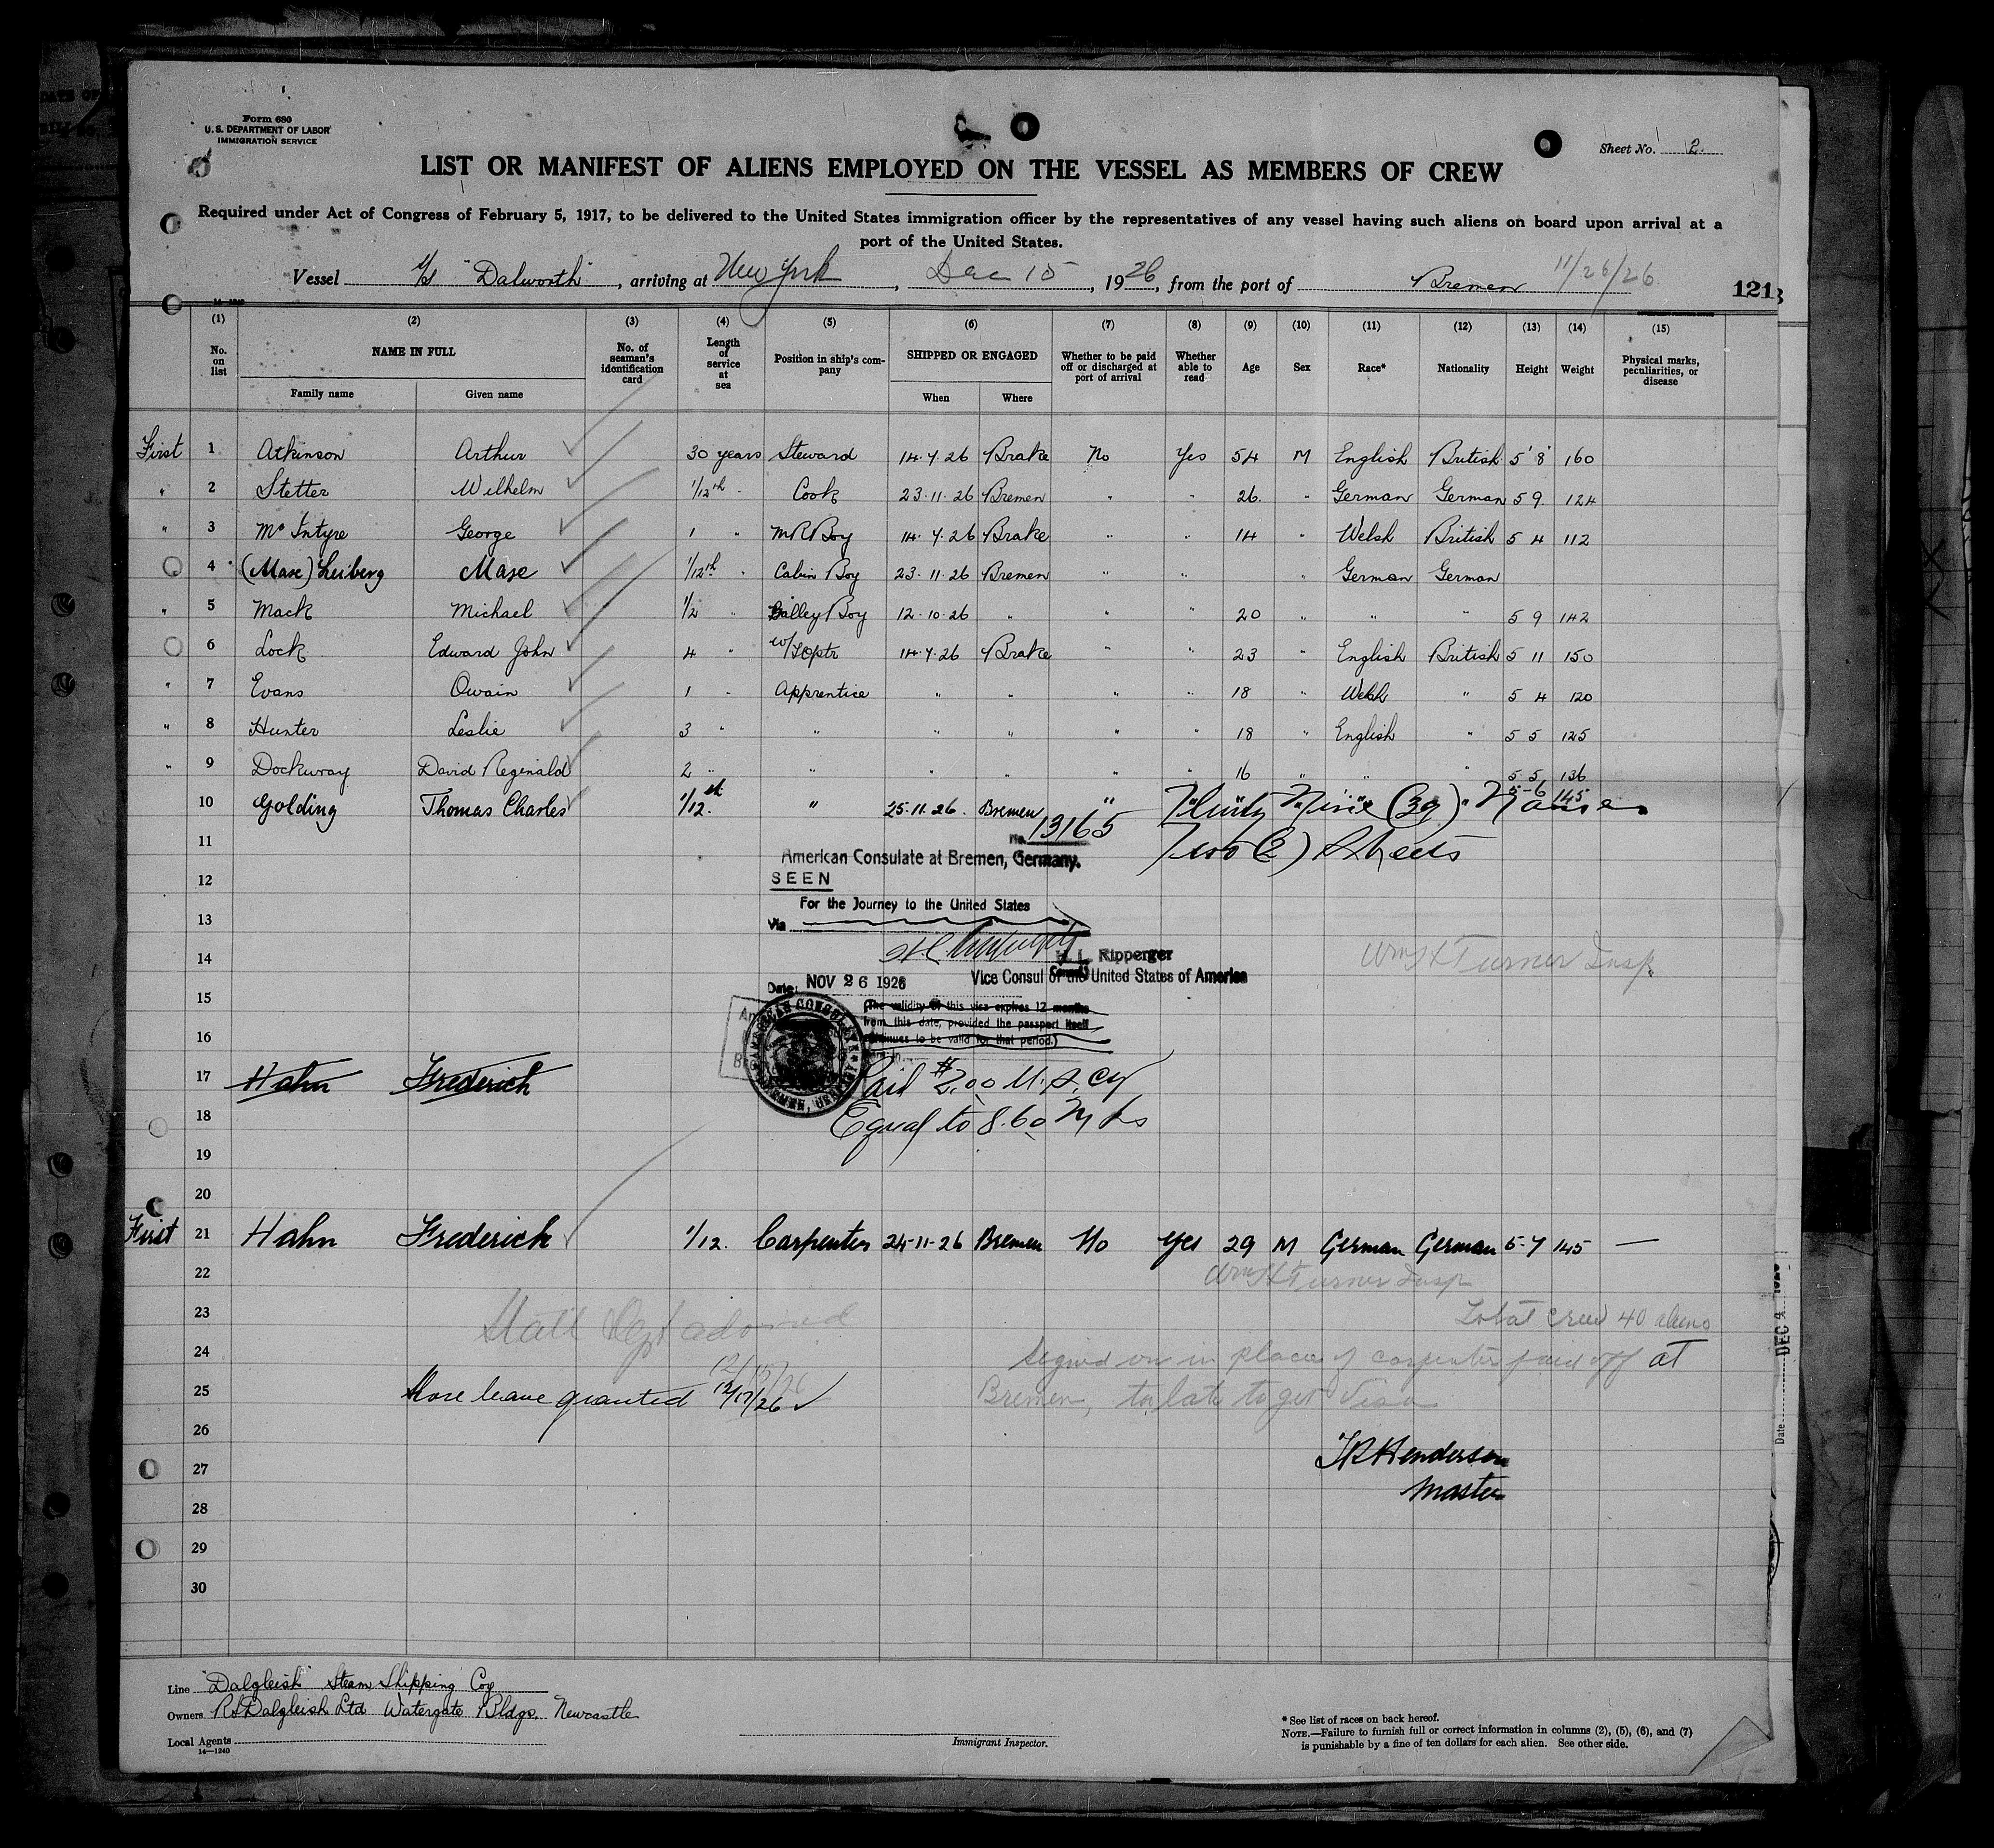 Form 680
U. S. DEPARTMENT OF LABOR
IMMIGRATION SERVICE
Sheet No. 2
LIST OR MANIFEST OF ALIENS EMPLOYED ON THE VESSEL AS MEMBERS OF CREW
Required under Act of Congress of February 5, 1917, to be delivered to the United States immigration officer by the representatives of any vessel having such aliens on board upon arrival at a
port of the United States.
Vessel S/S "Dalworth", arriving at New York, Dec 15, 1926, from the port of Bremen 11/26/26
121
(1) (2) (3) (4) (5) (6) (7) (8) (9) (10) (11) (12) (13) (14) (15)
No. on list NAME IN FULL No. of seaman's identification card Length of service at sea Position in ship's company SHIPPED OR ENGAGED Whether to be paid off or discharged at port of arrival Whether able to read Age Sex Race* Nationality Height Weight Physical marks, peculiarities, or disease
Family name Given name When Where
First 1 Atkinson Arthur 30 years Steward 14.7.26 Brake No Yes 54 M English British 5'8" 160
" 2 Stetter Wilhelm 1/12th " Cook 23.11.26 Bremen " " 26. " German German 5 9. 124
" 3 Mc Intyre George 1 " M R Boy 14.7.26 Brake " " 14 " Welsh British 5 4 112
4 (Mase) Leiberg Mase 1/12th " Cabin Boy 23.11.26 Bremen " " " German German
" 5 Mack Michael 1/2 " Galley Boy 12.10.26 " " " 20 " " " 5 9 142
6 Lock Edward John 4 " W/T Optr 14.7.26 Brake " " 23 " English British 5 11 150
" 7 Evans Owain 1 " Apprentice " " " " 18 " Welsh " 5 4 120
" 8 Hunter Leslie 3 " " " " " " 18 " English " 5 5 125
" 9 Dockwray David Reginald 2 " " " " " " 16 " " " 5 5 136
10 Golding Thomas Charles 1/12.th " 25.11.26. Bremen " 5-6 145
Thirty Nine (39) Names
11 No. 13165 Two (2) Sheets
American Consulate at Bremen, Germany.
12 SEEN
For the Journey to the United States
13 Via
14 H. L. Ripperger
Wm H Turner Insp.
Vice Consul of the United States of America
15 Date: NOV 26 1926
(The validity of this visa expires 12 months
16 from this date, provided the passport itself
continues to be valid for that period.)
AMERICAN CONSULATE BREMEN, GERMANY
17 Hahn Frederich Paid $2.00 U.S. Cy
18 Equal to 8.60 Mks
19
20
First 21 Hahn Frederich 1/12. Carpenter 24-11-26 Bremen No Yes 29 M German German 5-7 145 —
22 Wm H Turner Insp
23 State Dept advised Total crew 40 aliens
24 12/15/26 Signed on in place of carpenter paid off at
25 Shore leave granted 12/17/26 Bremen, too late to get Visa
26
27 Henderson
28 Master
29
30
DEC 4
Date
Line "Dalgleish" Steam Shipping Coy
Owners R S Dalgleish Ltd Watergate Bldgs. Newcastle
Local Agents
14—1240
Immigrant Inspector.
* See list of races on back hereof.
NOTE.—Failure to furnish full or correct information in columns (2), (5), (6), and (7)
is punishable by a fine of ten dollars for each alien. See other side.